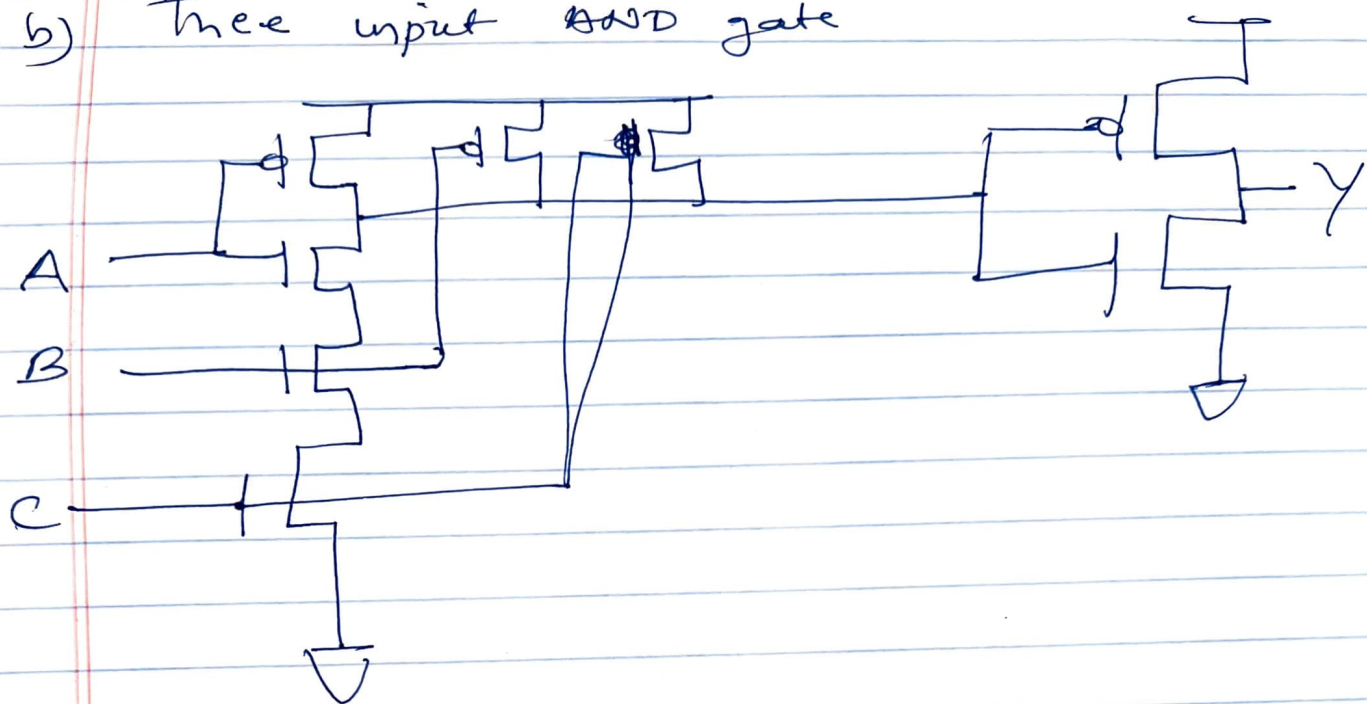 b) Three input AND gate
A
B
C
Y